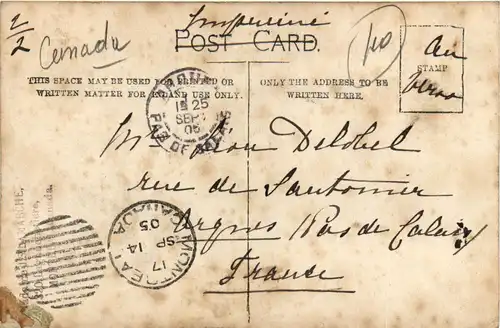 1/2
Canada
Imprimé
POST CARD.
10
Au
STAMP
verso
THIS SPACE MAY BE USED FOR PRINTED OR
WRITTEN MATTER FOR INLAND USE ONLY.
ONLY THE ADDRESS TO BE
WRITTEN HERE.
15 25
SEPT
05
PAS DE CALAIS
Mr Léon Delobel
rue de Santonier
Arques (Pas de Calais)
France
MONTREAL CANADA
17
SP 14
05